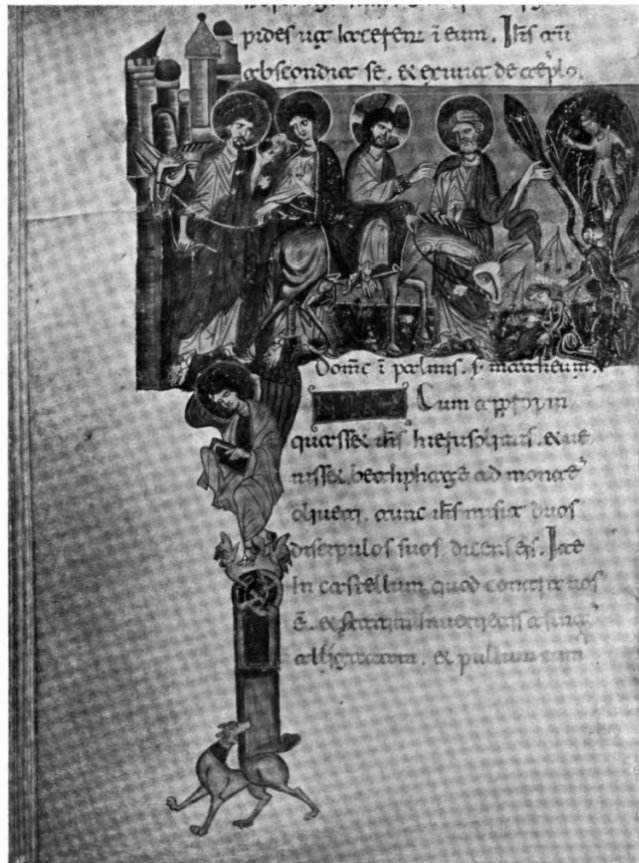 pides ut iacerent ī eum. Ihs̄ aū
abscondit se. et exivit de tēplo.
Domīc ī palmis. s. mattheum.
Cum appropin
quasset ihs̄ hierusolimis. et ve
nisset bethphage ad montē
oliveti, tunc ihs̄ misit duos
discipulos suos dicens eis. Ite
In castellum quod contra vos
ē. et statim invenietis asinā
alligatam. et pullum cum